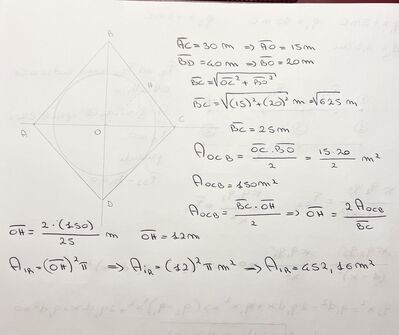 B
H
A
O
C
D
A̅C̅ = 30 m ⇒ A̅O̅ = 15m
B̅D̅ = 40 m ⇒ B̅O̅ = 20m
B̅C̅ = √(O̅C̅² + B̅O̅²)
B̅C̅ = √((15)² + (20)²) m = √625 m
B̅C̅ = 25m
A_OCB = (O̅C̅ · B̅O̅)/2 = (15·20)/2 m²
A_OCB = 150m²
A_OCB = (B̅C̅ · O̅H̅)/2 ⇒ O̅H̅ = 2A_OCB/B̅C̅
O̅H̅ = 2·(150)/25 m O̅H̅ = 12m
A_IR = (O̅H̅)²π ⇒ A_IR = (12)²π m² ⇒ A_IR = 452,16m²